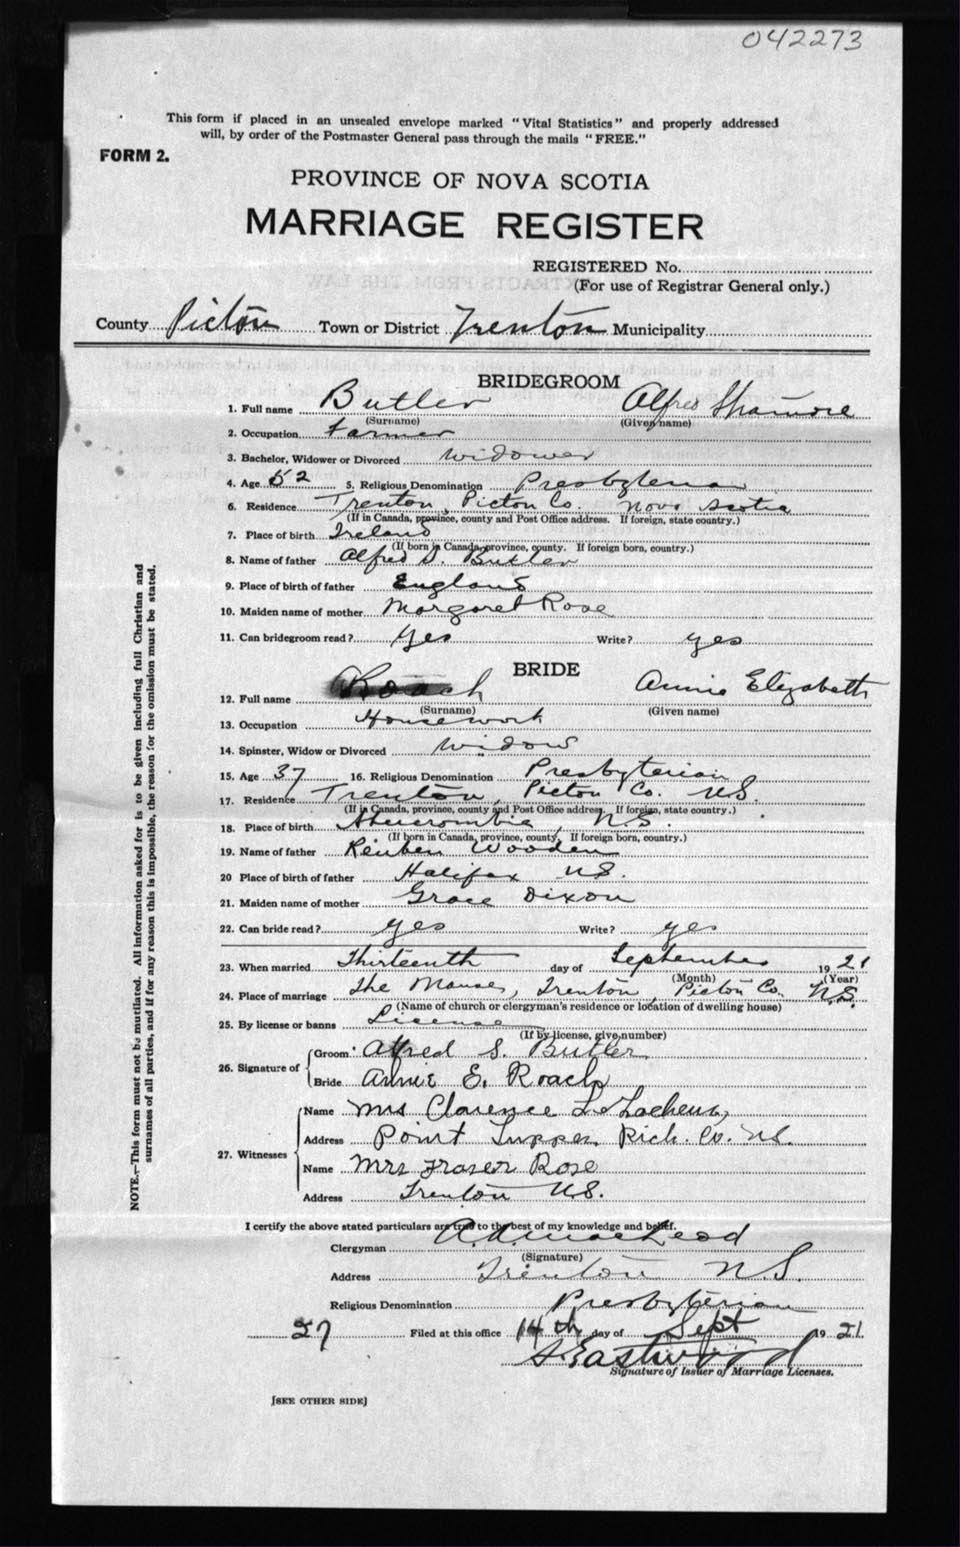 042273
This form if placed in an unsealed envelope marked "Vital Statistics" and properly addressed
will, by order of the Postmaster General pass through the mails "FREE."
FORM 2.
PROVINCE OF NOVA SCOTIA
MARRIAGE REGISTER
REGISTERED No.
(For use of Registrar General only.)
County Pictou Town or District Trenton Municipality
BRIDEGROOM
1. Full name Butler Alfred
(Surname) (Given name)
2. Occupation Farmer
3. Bachelor, Widower or Divorced widower
4. Age 52 5. Religious Denomination Presbyterian
6. Residence Trenton, Pictou Co. Nova Scotia
(If in Canada, province, county and Post Office address. If foreign, state country.)
7. Place of birth Ireland
(If born in Canada, province, county. If foreign born, country.)
8. Name of father Alfred S. Butler
9. Place of birth of father England
10. Maiden name of mother Margaret Rose
11. Can bridegroom read? yes Write? yes
BRIDE
12. Full name Roach Annie Elizabeth
(Surname) (Given name)
13. Occupation Housework
14. Spinster, Widow or Divorced widow
15. Age 37 16. Religious Denomination Presbyterian
17. Residence Trenton, Pictou Co. N.S.
(If in Canada, province, county and Post Office address, If foreign, state country.)
18. Place of birth Abercrombie, N.S.
(If born in Canada, province, county, If foreign born, country.)
19. Name of father Reuben Wooden
20 Place of birth of father Halifax N.S.
21. Maiden name of mother Grace Dixon
22. Can bride read? yes Write? yes
23. When married Thirteenth day of September 1921
(Month) (Year)
24. Place of marriage The Manse, Trenton, Pictou Co. N.S.
(Name of church or clergyman's residence or location of dwelling house)
25. By license or banns License
(If by license, give number)
26. Signature of
Groom Alfred S. Butler
Bride Annie E. Roach
27. Witnesses
Name Mrs Clarence
Address Point Tupper Rich. Co. N.S.
Name Mrs Fraser Rose
Address Trenton N.S.
I certify the above stated particulars are true to the best of my knowledge and belief.
Clergyman A.D. MacLeod
(Signature)
Address Trenton N.S.
Religious Denomination Presbyterian
27 Filed at this office 14th day of Sept 1921
Eastwood
Signature of Issuer of Marriage Licenses.
[SEE OTHER SIDE]
NOTE.—This form must not be mutilated. All information asked for is to be given including full Christian and
surnames of all parties, and if for any reason this is impossible, the reason for the omission must be stated.